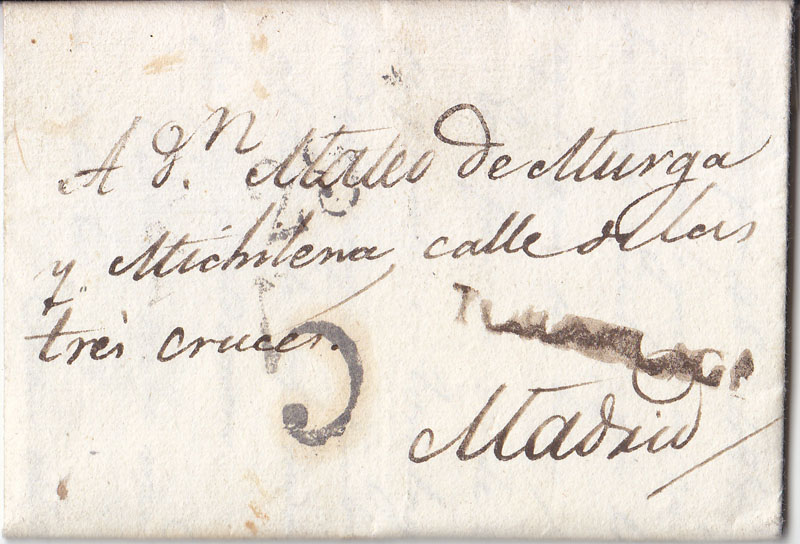 A Dn. Mateo de Murga
y Michilena, calle de las
tres cruces.
5
Madrid